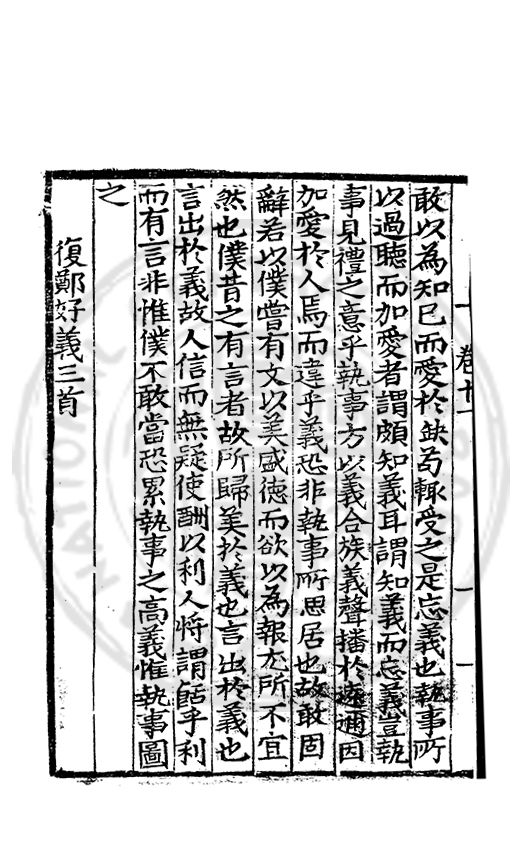 卷十一
敢以為知己而愛於缺苟輙受之是忘義也執事所
以過聽而加愛者謂頗知義耳謂知義而忘義豈執
事見禮之意乎執事方以義合族義聲播於遠邇因
加愛於人焉而違乎義恐非執事所思居也故敢固
辭若以僕嘗有文以美盛德而欲以為報尤所不宜
然也僕昔之有言者故所歸美於義也言出於義也
言出於義故人信而無疑使酬以利人將謂餂乎利
而有言非惟僕不敢當恐累執事之高義惟執事圖
之
復鄭好義三首